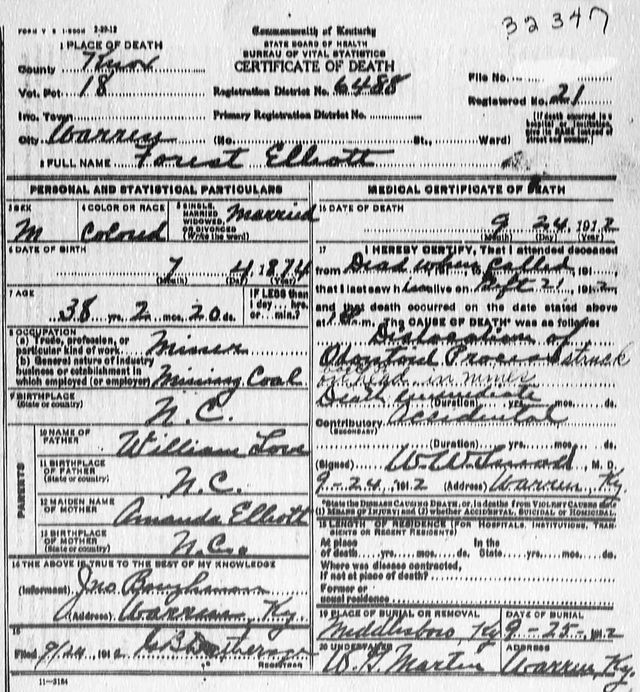 FORM V. S. 1-500M 2-29-12
Commonwealth of Kentucky
STATE BOARD OF HEALTH
BUREAU OF VITAL STATISTICS
CERTIFICATE OF DEATH
32347
1 PLACE OF DEATH
County Knox
Vot. Pct 18
Inc. Town
City Warren (No. St., Ward)
Registration District No. 6488
Primary Registration District No.
File No.
Registered No. 21
(If death occurred in a hospital or institution, give its NAME instead of street and number.)
2 FULL NAME Forest Elliott
PERSONAL AND STATISTICAL PARTICULARS
3 SEX
M
4 COLOR OR RACE
Colored
5 SINGLE, MARRIED WIDOWED, OR DIVORCED (Write the word)
Married
6 DATE OF BIRTH
7 4 1874
(Month) (Day) (Year)
7 AGE
38 yrs. 2 mos. 20 ds.
IF LESS than 1 day, hrs. or min.?
8 OCCUPATION
(a) Trade, profession, or particular kind of work Miner
(b) General nature of industry business or establishment in which employed (or employer) Mining Coal
9 BIRTHPLACE
(State or country)
N.C.
PARENTS
10 NAME OF FATHER
William Love
11 BIRTHPLACE OF FATHER
(State or country)
N.C.
12 MAIDEN NAME OF MOTHER
Amanda Elliott
13 BIRTHPLACE OF MOTHER
(State or country)
N.C.
14 THE ABOVE IS TRUE TO THE BEST OF MY KNOWLEDGE
(Informant) Jno. Baughman
(Address) Warren, Ky
15
Filed 9/24, 1912
REGISTRAR
11-3184
MEDICAL CERTIFICATE OF DEATH
16 DATE OF DEATH
9 24, 1912
(Month) (Day) (Year)
17 I HEREBY CERTIFY, That I attended deceased
from Dead when called, 191
that I last saw h im alive on Sept 21, 1912
and that death occurred on the date stated above
at m. The CAUSE OF DEATH* was as follows:
Dislocation of
Odontoid Process struck
on head in mines
Death immediate
(Duration) yrs. mos. ds.
Contributory Accidental
(SECONDARY)
(Duration) yrs. mos. ds.
(Signed) M. D.
9-24, 1912 (Address) Warren, Ky
*State the DISEASE CAUSING DEATH, or, in deaths from VIOLENT CAUSES state (1) MEANS OF INJURY; and (2) whether ACCIDENTAL, SUICIDAL or HOMICIDAL.
18 LENGTH OF RESIDENCE (FOR HOSPITALS, INSTITUTIONS, TRANSIENTS OR RECENT RESIDENTS)
At place of death yrs. mos. ds. In the State yrs. mos. ds.
Where was disease contracted,
If not at place of death?
Former or usual residence
19 PLACE OF BURIAL OR REMOVAL
Middlesboro Ky
DATE OF BURIAL
9-25-1912
20 UNDERTAKER
W. G. Martin
ADDRESS
Warren, Ky.